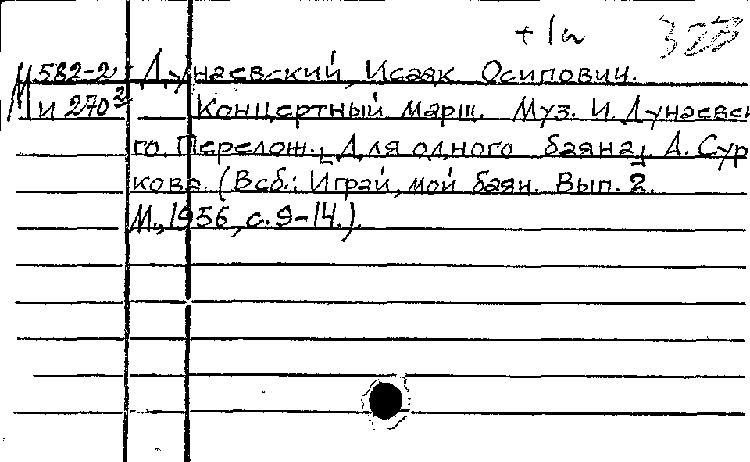 +1н 323
М 582-2 Дунаевский, Исаак Осипович.
и 270² Концертный марш. Муз. И. Дунаевск
го. Перелож. [Для одного баяна] А. Сур
кова. (В сб.: Играй, мой баян. Вып. 2.
М., 1956, с. 9-14.).